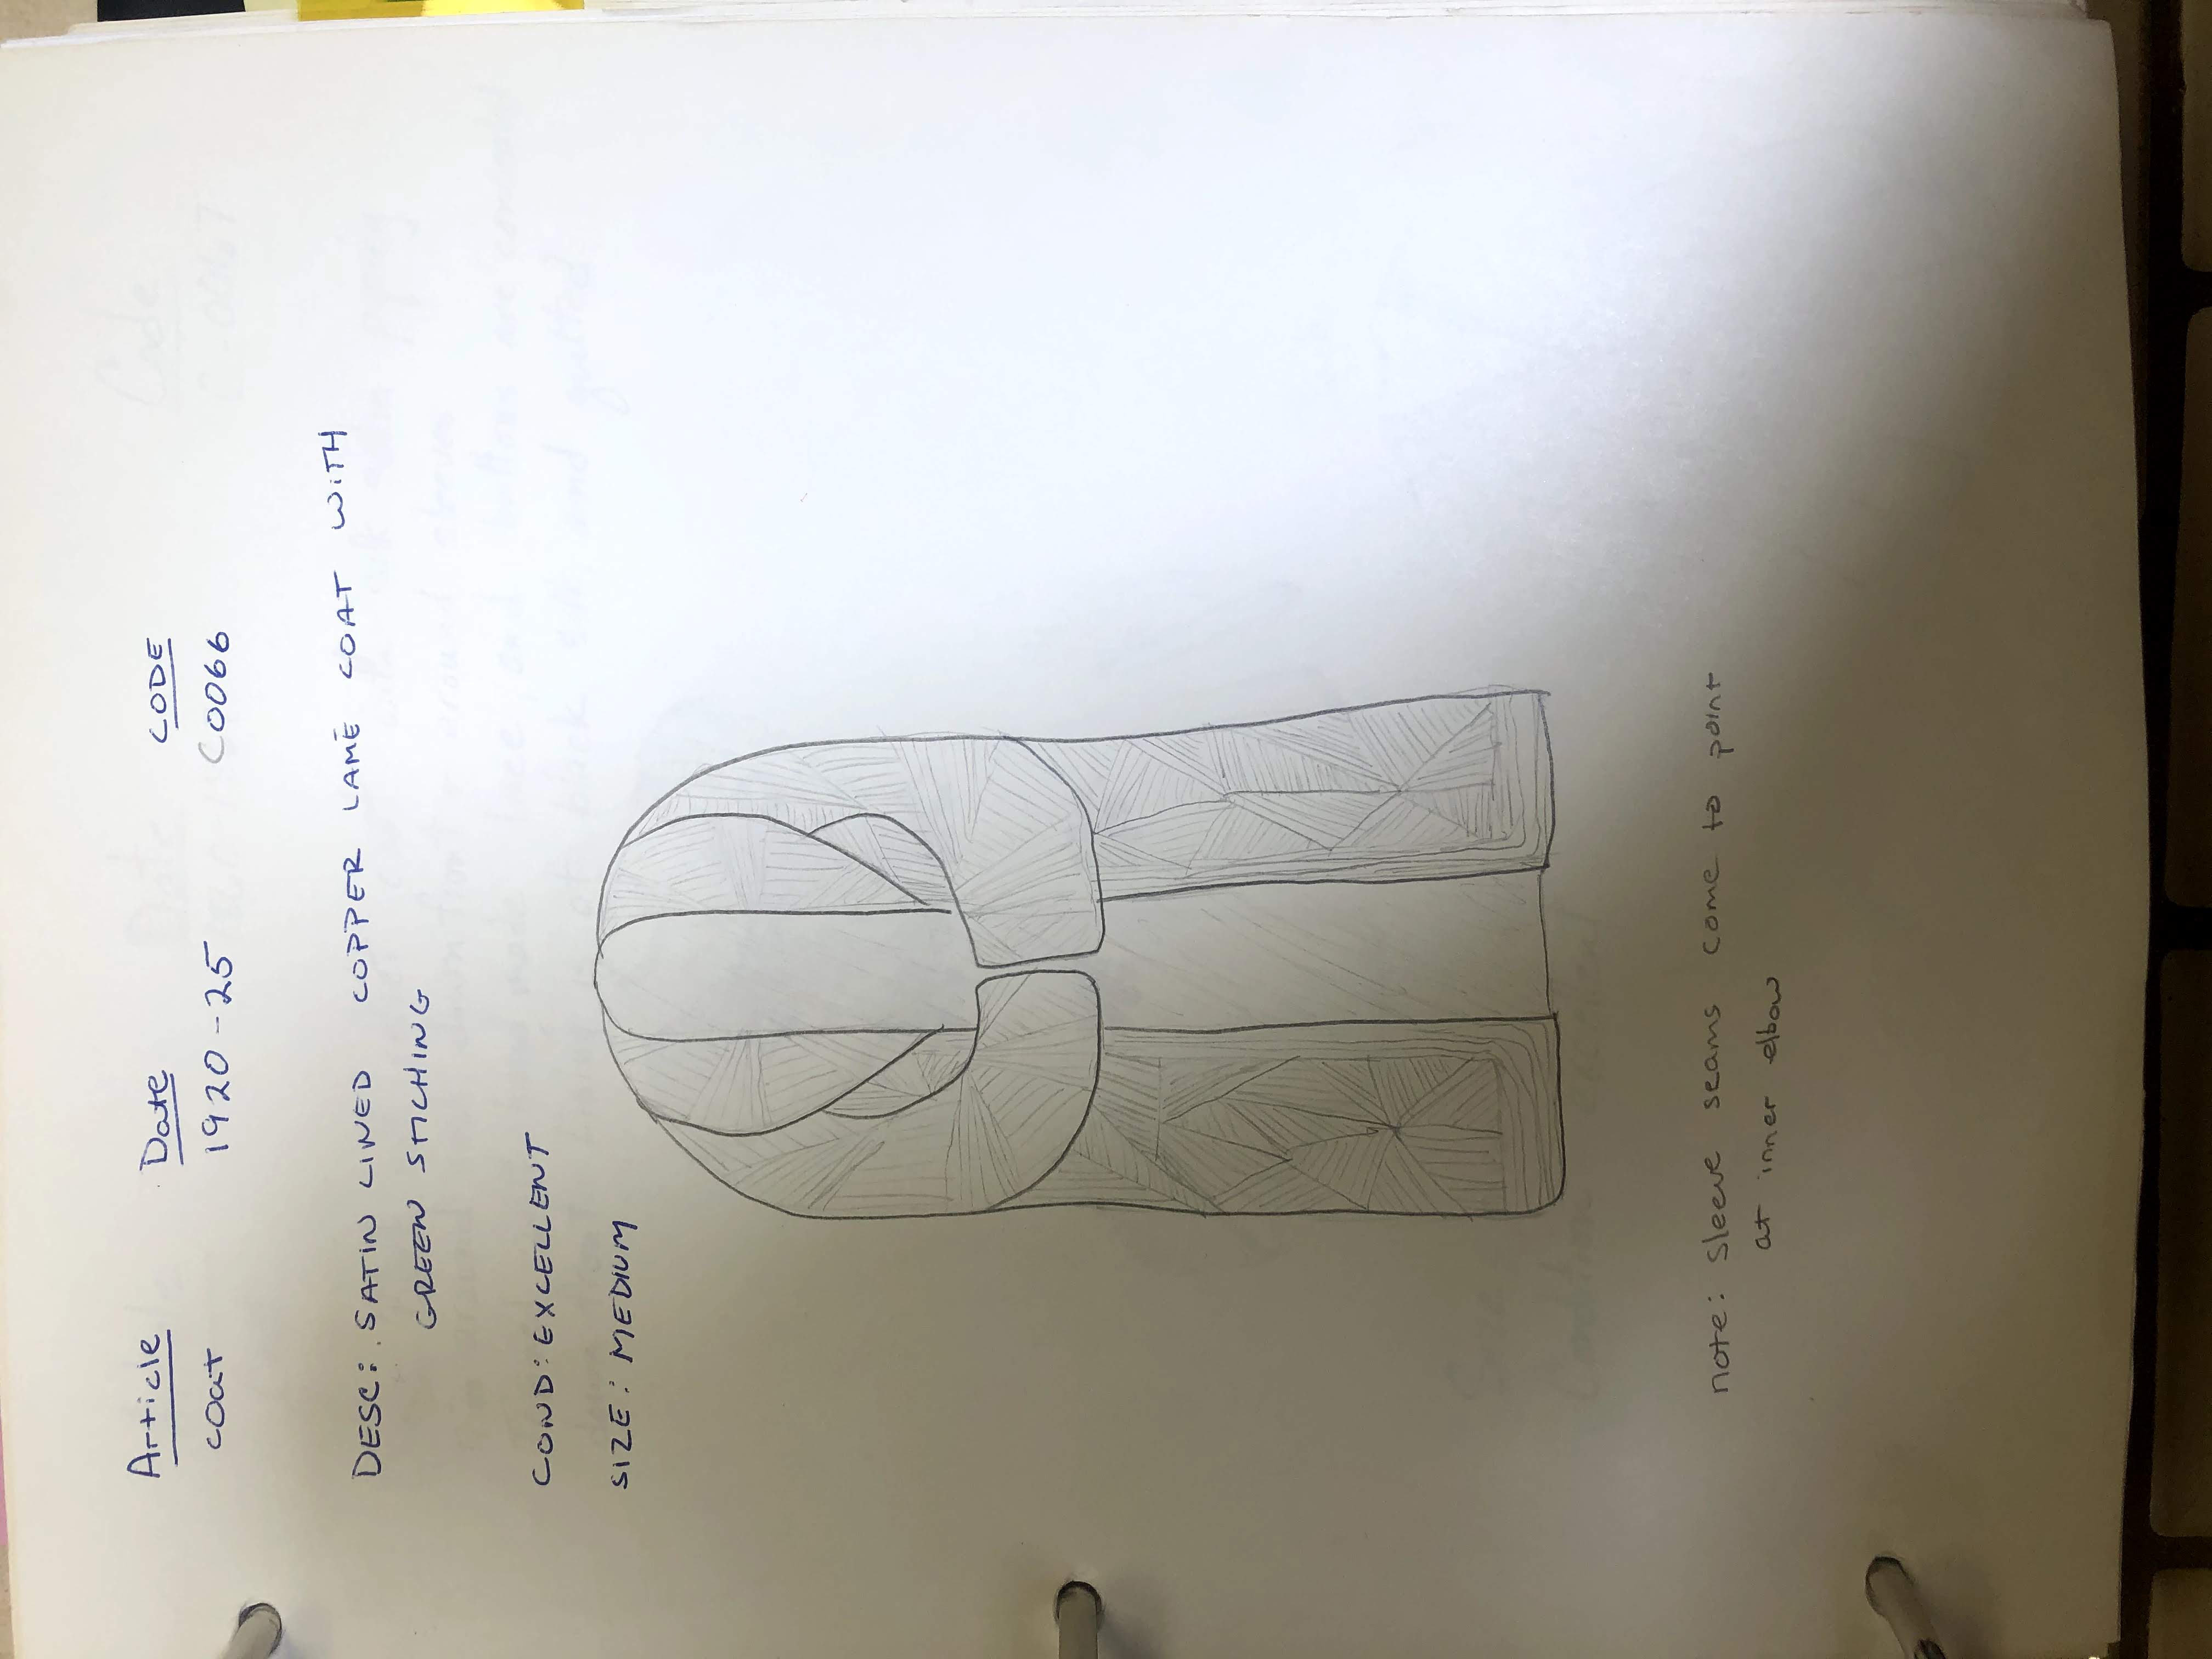 Article Date CODE
coat 1920-25 C0066
DESC: SATIN LINED COPPER LAMÉ COAT WITH
GREEN STICHING
COND: EXCELLENT
SIZE: MEDIUM
note: sleeve seams come to point
at inner elbow